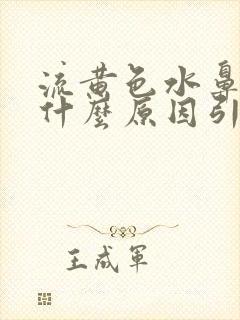 流黄色水鼻
什麼原因引
王成軍